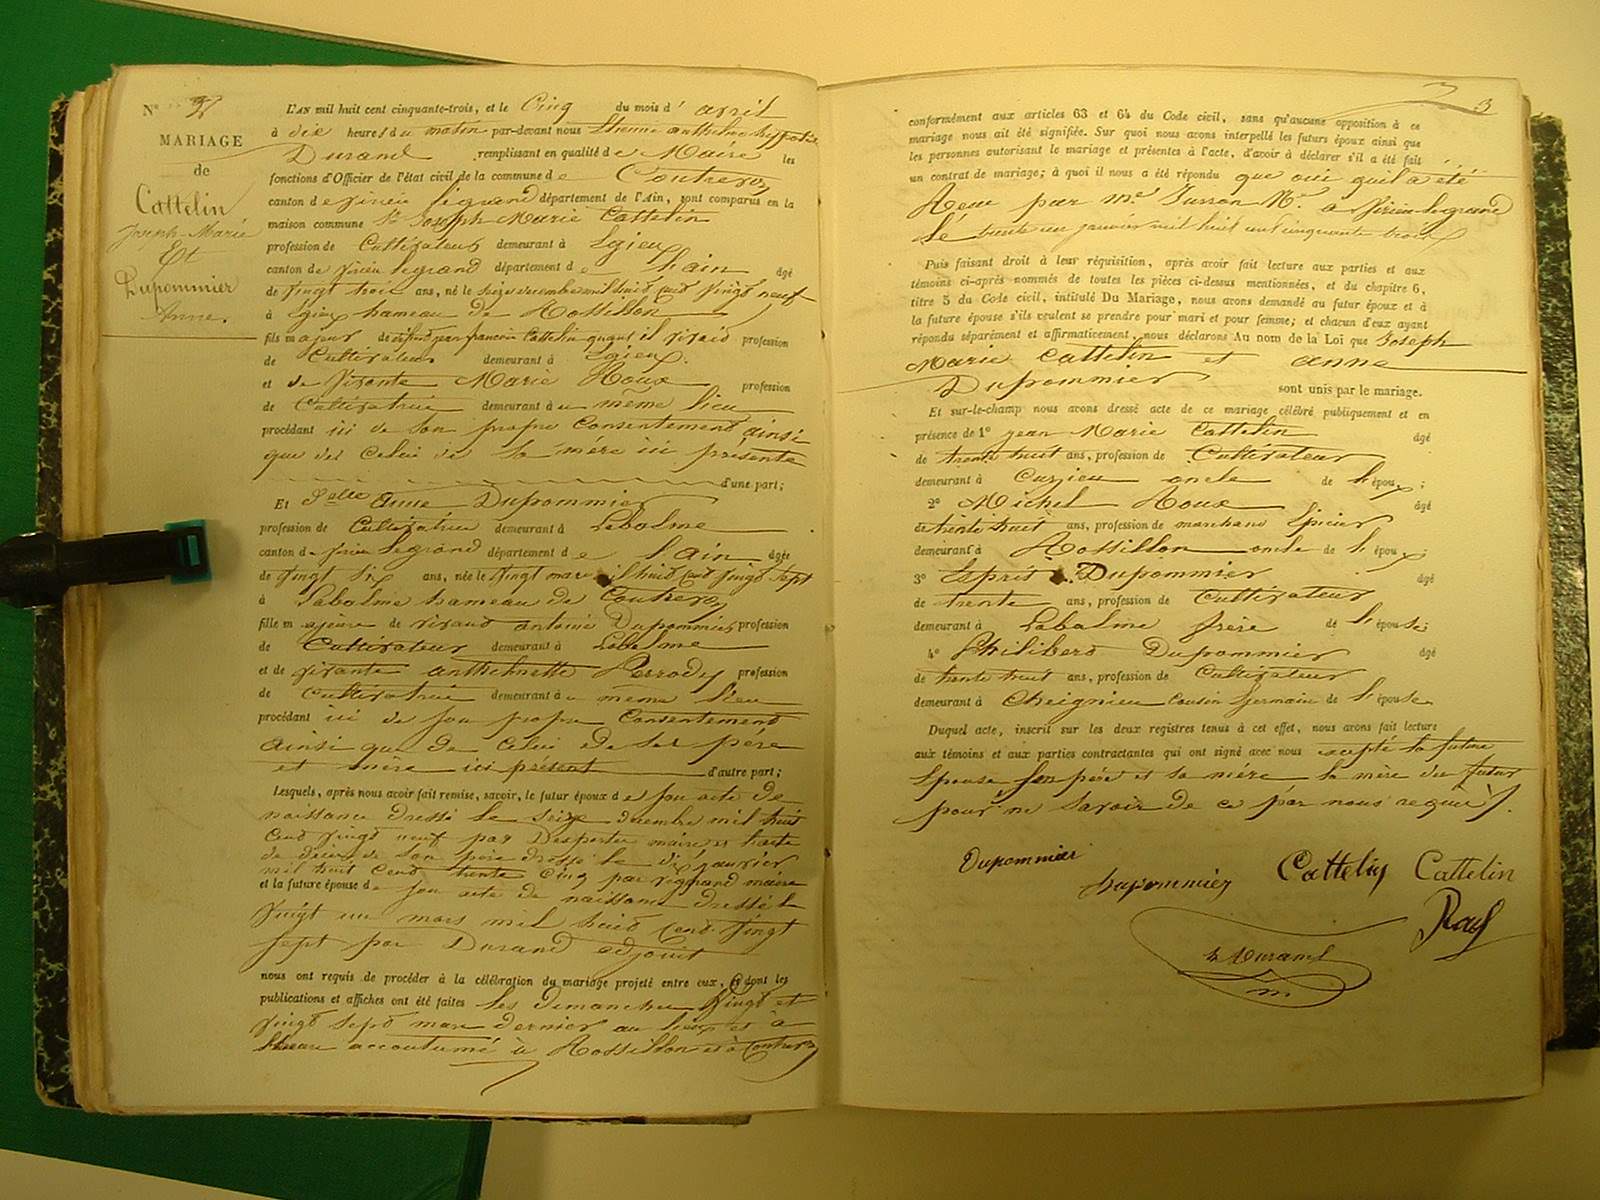 N°
MARIAGE
de
Cattelin
Joseph-Marie
Et
Dupommier
Anne.
L'AN mil huit cent cinquante-trois, et le Cinq du mois d' avril
à dix heures du matin par-devant nous Etienne anthelme hyppolite
Durand remplissant en qualité de Maire les
fonctions d'Officier de l'état civil de la commune de Contrevoz
canton de virieu legrand département de l'Ain, sont comparus en la
maison commune Sr Joseph Marie Cattelin
profession de Cultivateur demeurant à
canton de virieu legrand département de l'ain âgé
de vingt trois ans, né le seize decembre mil huit cent vingt neuf
à hameau de Rossillon
fils majeur de défunt francois Cattelin quand il vivait profession
de Cultivateur demeurant à
et de vivante Marie Roux profession
de Cultivatrice demeurant au même lieu
procédant ici de son propre Consentement ainsi
que de Celui de sa mère ici présente
d'une part;
Et Delle Anne Dupommier
profession de Cultivatrice demeurant à Labalme
canton de virieu legrand département de l'ain âgée
de vingt six ans, née le vingt mars mil huit cent vingt sept
à Labalme hameau de Contrevoz
fille majeure de vivant antoine Dupommier profession
de Cultivateur demeurant à Labalme
et de vivante anthelmette Perrody profession
de Cultivatrice demeurant au meme lieu
procédant ici de son propre Consentement
ainsi que de Celui de ses père
et mère ici présent d'autre part;
Lesquels, après nous avoir fait remise, savoir, le futur époux de son acte de
naissance dressé le seize decembre mil huit
Cent vingt neuf par maire et l'acte
de décès de son père dressé le dix janvier
mil huit Cent trente Cinq par maire
et la future épouse de son acte de naissance dressé le
vingt un mars mil huit Cent vingt
sept par Durand adjoint
nous ont requis de procéder à la célébration du mariage projeté entre eux, et dont les
publications et affiches ont été faites les dimanches vingt et
vingt sept mars dernier au lieu et à
l'heure accoutumé à Rossillon et à Contrevoz
3
conformément aux articles 63 et 64 du Code civil, sans qu'aucune opposition à ce
mariage nous ait été signifiée. Sur quoi nous avons interpellé les futurs époux ainsi que
les personnes autorisant le mariage et présentes à l'acte, d'avoir à déclarer s'il a été fait
un contrat de mariage; à quoi il nous a été répondu que oui quil a été
Recu par me N.re a Virieu-legrand
Le trente un janvier mil huit cent cinquante trois
Puis faisant droit à leur réquisition, après avoir fait lecture aux parties et aux
témoins ci-après nommés de toutes les pièces ci-dessus mentionnées, et du chapitre 6,
titre 5 du Code civil, intitulé Du Mariage, nous avons demandé au futur époux et à
la future épouse s'ils veulent se prendre pour mari et pour femme; et chacun d'eux ayant
répondu séparément et affirmativement, nous déclarons Au nom de la Loi que Joseph
Marie Cattelin et anne
Dupommier sont unis par le mariage.
Et sur-le-champ nous avons dressé acte de ce mariage célébré publiquement et en
présence de 1° jean Marie Cattelin âgé
de trente huit ans, profession de Cultivateur
demeurant à Cuzieu oncle de l'époux;
2° Michel Roux âgé
de trente huit ans, profession de marchand Epicier
demeurant à Rossillon oncle de l'époux;
3° Esprit Dupommier âgé
de trente ans, profession de Cultivateur
demeurant à Labalme frère de l'épouse;
4° Philibert Dupommier âgé
de trente huit ans, profession de Cultivateur
demeurant à Cheignieu Cousin Germain de l'épouse
Duquel acte, inscrit sur les deux registres tenus à cet effet, nous avons fait lecture
aux témoins et aux parties contractantes qui ont signé avec nous excepté la future
Epouse, son père et sa mère la mère du futur
pour ne savoir de ce par nous requis.
Dupommier
Dupommier
Cattelin
Cattelin
Roux
Durand